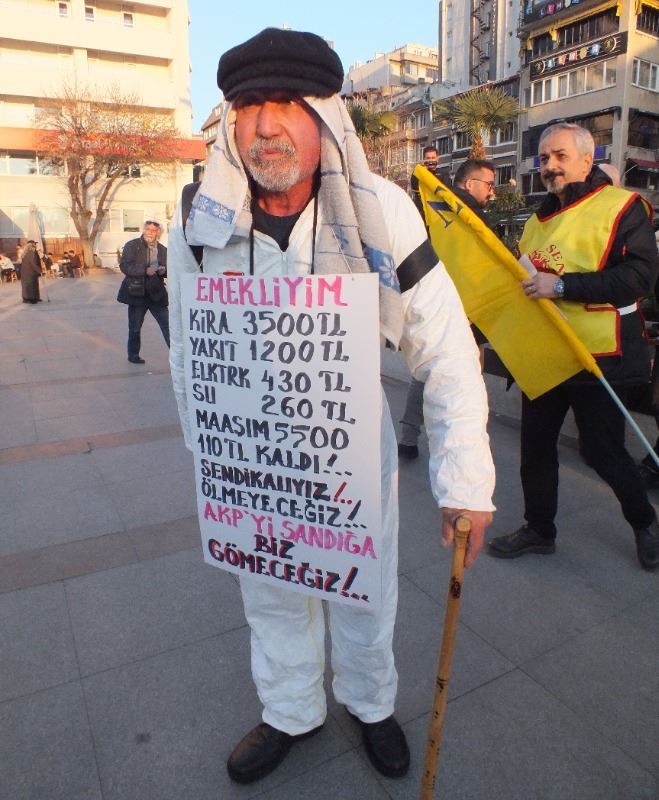 EMEKLİYİM
KİRA 3500 TL
YAKIT 1200 TL
ELKTRK 430 TL
SU 260 TL
MAASIM 5500
110 TL KALDI!..
SENDİKALIYIZ!..
ÖLMEYECEĞİZ!..
AKP'Yİ SANDIĞA
BİZ
GÖMECEĞİZ!..